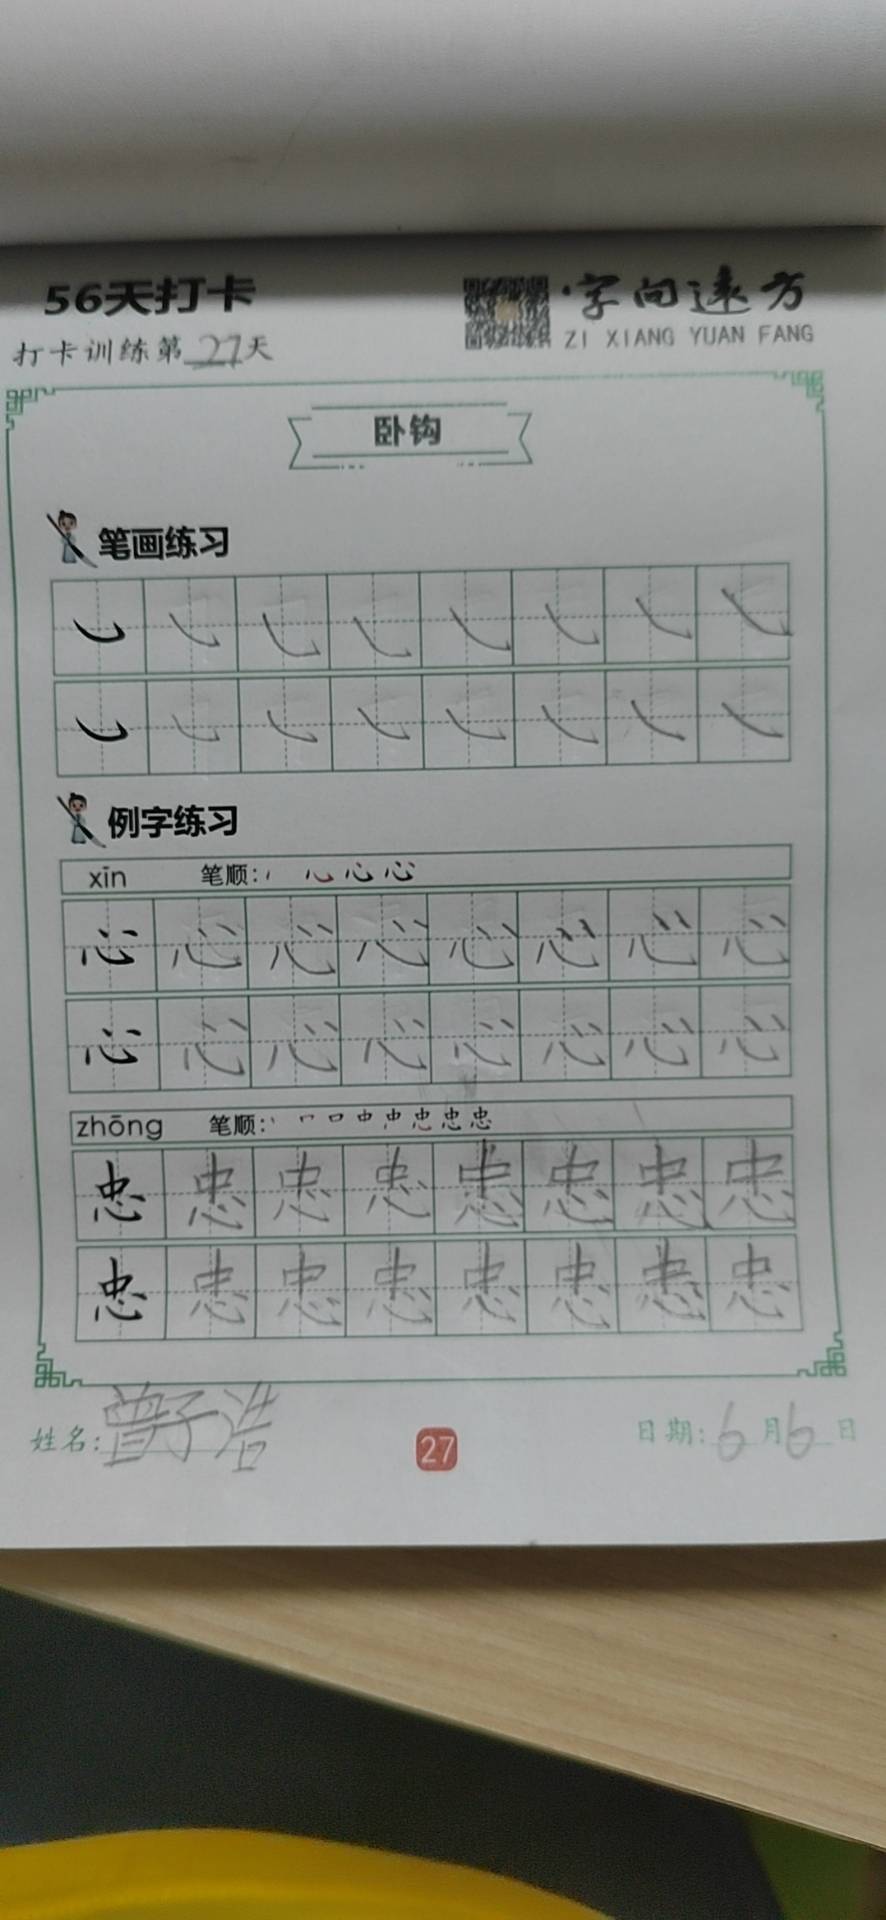 56天打卡
字向远方
ZI XIANG YUAN FANG
打卡训练第27天
卧钩
笔画练习
例字练习
xīn 笔顺:
心 心 心 心 心 心 心 心
心 心 心 心 心 心 心 心
zhōng 笔顺:
忠 忠 忠 忠 忠 忠 忠 忠
忠 忠 忠 忠 忠 忠 忠 忠
姓名:
27
日期:6月6日